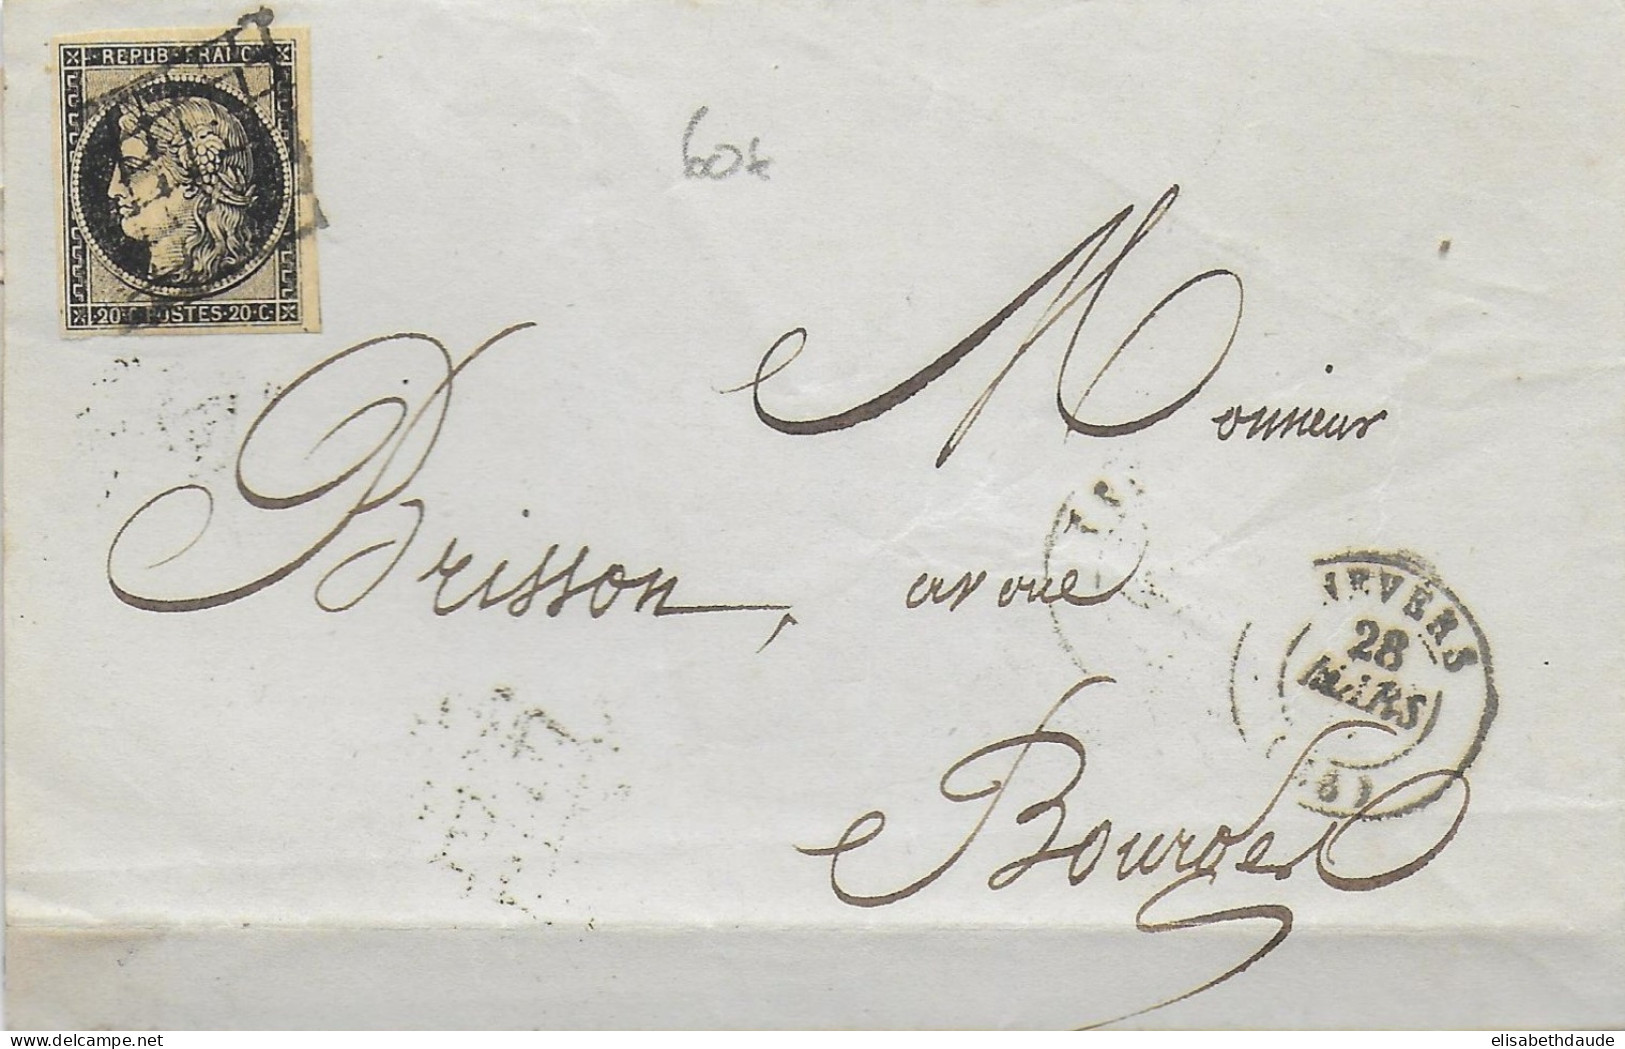 REPUB FRANC
20 C POSTES 20 C
60€
Monsieur
Brisson, avoué
NEVERS
28
MARS
Bourges
delcampe.net
elisabethdaude